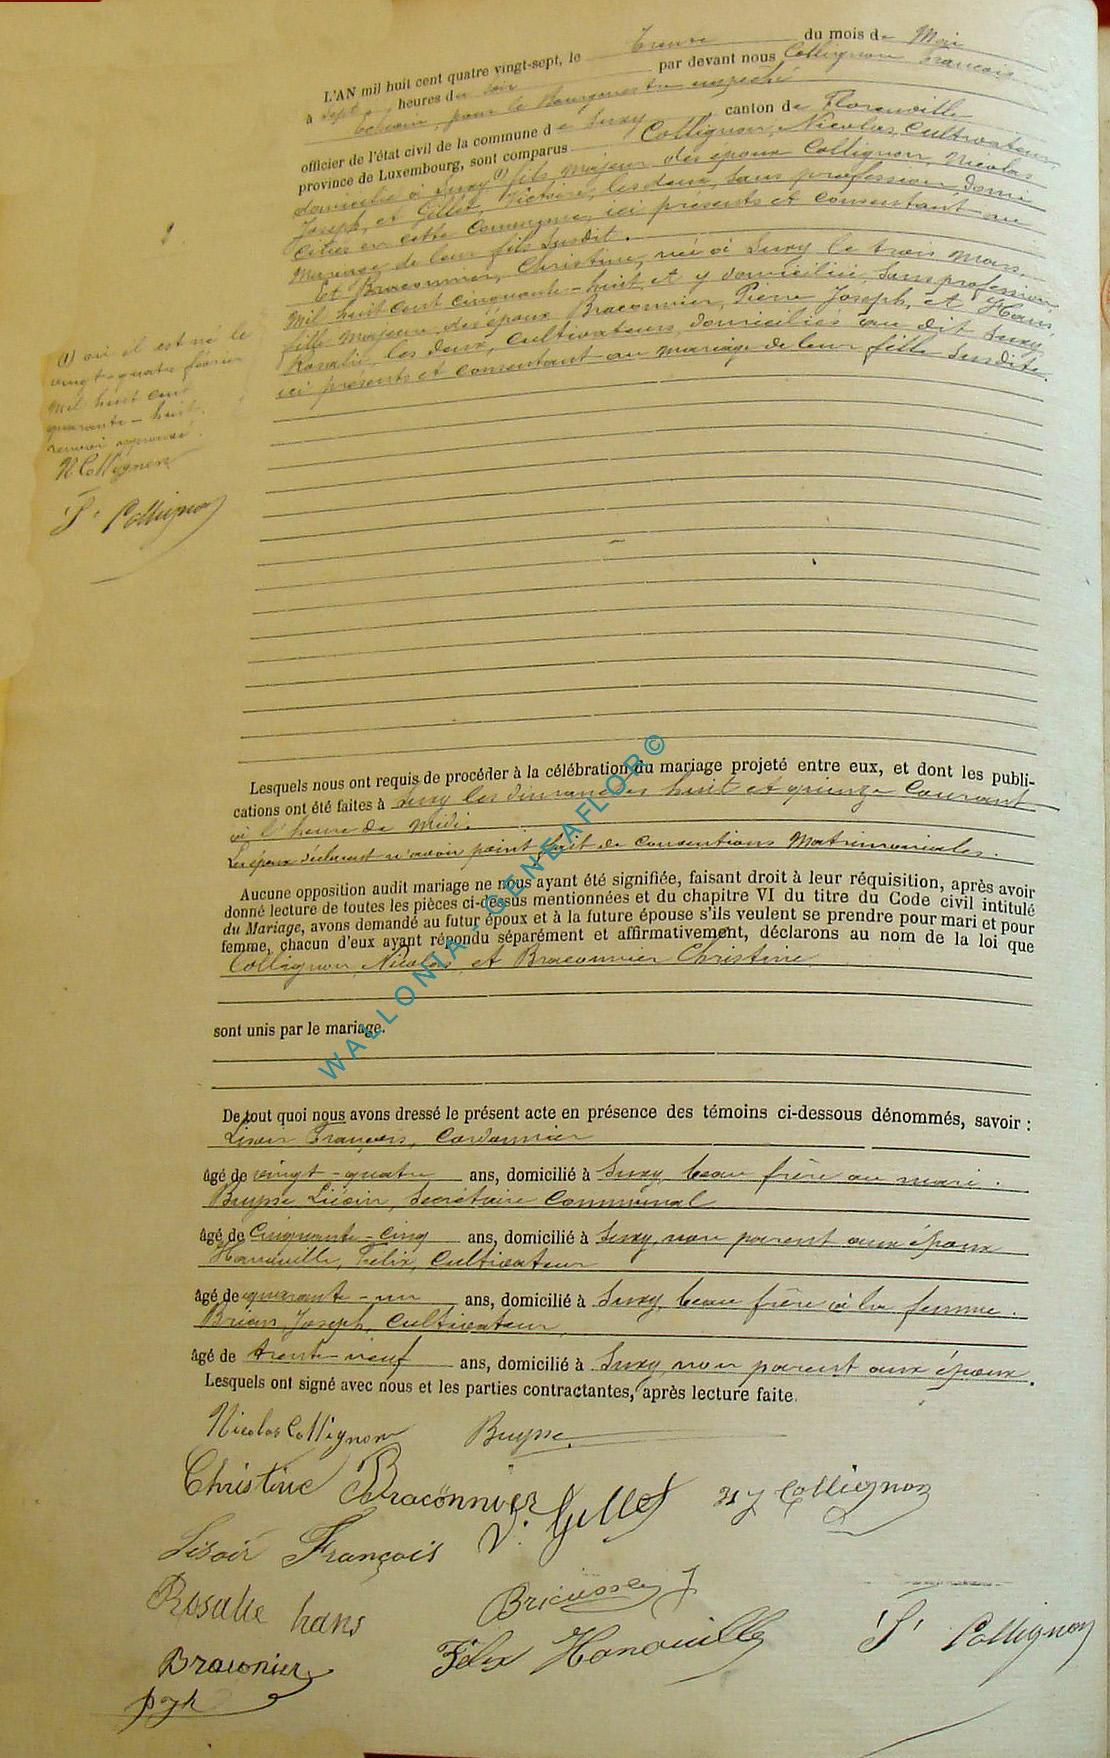 L'AN mil huit cent quatre vingt-sept, le trente du mois de Mai
à sept heures du soir par devant nous Collignon François
Echevin, pour le Bourgmestre empêché
officier de l'état civil de la commune de Suxy canton de Florenville
province de Luxembourg, sont comparus Collignon, Nicolas, Cultivateur,
domicilié à Suxy (1) fils majeur des époux Collignon, Nicolas
Joseph, et Gillet, Victoire, les deux, sans profession domi
ciliés en cette Commune, ici présents et consentant au
Mariage de leur fils susdit.
Et Braconnier, Christine, née à Suxy le trois mars
mil huit cent cinquante-huit et y domiciliée, sans profession
fille majeure des époux Braconnier, Pierre Joseph, et Hans,
Rosalie, les deux, Cultivateurs, domiciliés au dit Suxy,
ici présents et consentant au mariage de leur fille susdite.
(1) où il est né le
vingt-quatre février
mil huit cent
quarante-huit.
renvoi approuvé.
N Collignon
F. Collignon
Lesquels nous ont requis de procéder à la célébration du mariage projeté entre eux, et dont les publi-
cations ont été faites à Suxy les dimanches huit et quinze Courant
à l'heure de Midi.
Les époux déclarent n'avoir point fait de conventions Matrimoniales.
Aucune opposition audit mariage ne nous ayant été signifiée, faisant droit à leur réquisition, après avoir
donné lecture de toutes les pièces ci-dessus mentionnées et du chapitre VI du titre du Code civil intitulé
du Mariage, avons demandé au futur époux et à la future épouse s'ils veulent se prendre pour mari et pour
femme, chacun d'eux ayant répondu séparément et affirmativement, déclarons au nom de la loi que
Collignon, Nicolas, et Braconnier Christine
sont unis par le mariage.
De tout quoi nous avons dressé le présent acte en présence des témoins ci-dessous dénommés, savoir :
François, Cordonnier
âgé de vingt-quatre ans, domicilié à Suxy, beau frère au mari.
Buysse Liévin, Secrétaire Communal
âgé de Cinquante-Cinq ans, domicilié à Suxy, non parent aux époux
Hanouille, Félix, Cultivateur
âgé de quarante-un ans, domicilié à Suxy, beau frère à la femme.
Joseph, Cultivateur,
âgé de trente-neuf ans, domicilié à Suxy, non parent aux époux.
Lesquels ont signé avec nous et les parties contractantes, après lecture faite.
Nicolas Collignon Buysse
Christine Braconnier V. Gillet N J Collignon
Lisoir François
Rosalie hans J
Braconier Félix Hanouille F. Collignon
WALLONIA - GENEAFLOR©